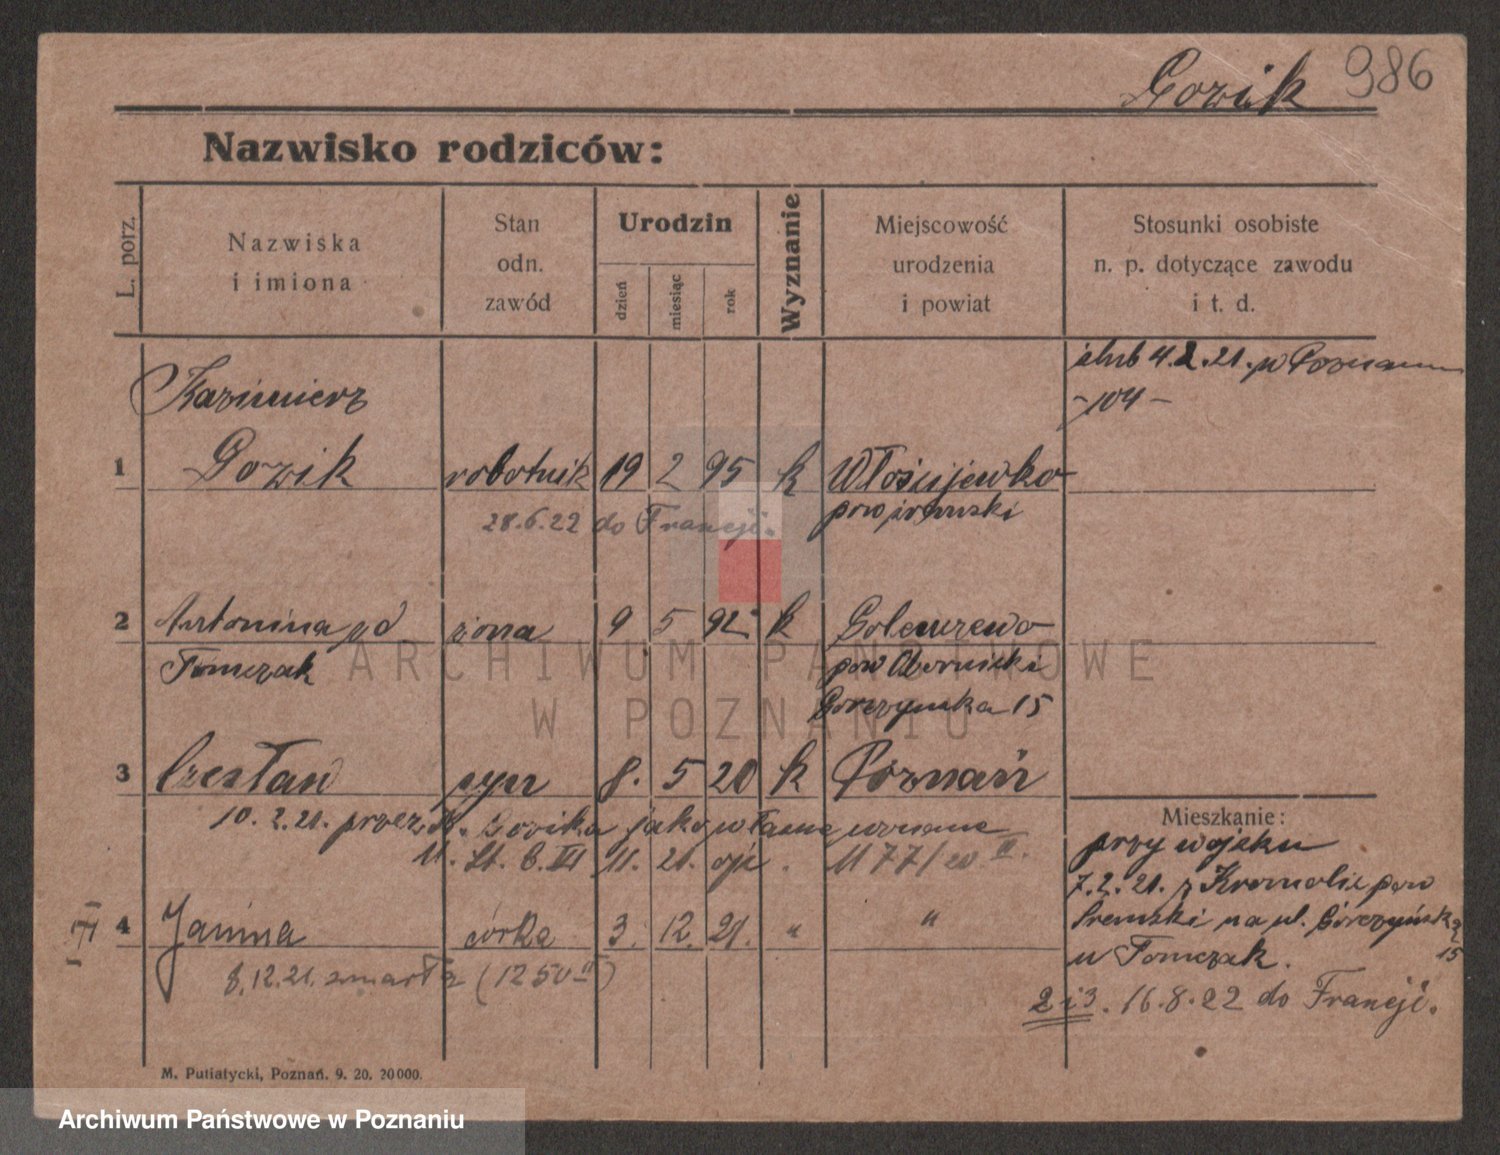 Gozik 986
Nazwisko rodziców:
L. porz.
Nazwiska
i imiona
Stan
odn.
zawód
Urodzin
dzień
miesiąc
rok
Wyznanie
Miejscowość
urodzenia
i powiat
Stosunki osobiste
n. p. dotyczące zawodu
i t. d.
ślub 4.2.21. w Poznaniu
-104-
Kazimierz
1 Gozik robotnik 19 2 95 k Włościjewko
pow śremski
28.6.22 do Francji.
2 Antonina żona 9 5 92 k Golenczewo
Tomczak pow Obornicki
Górczyńska 15
3 Czesław syn 8. 5 20 k Poznań
10.2.21. przez K. Gozika jako własne uznane
U. St. C. III 11. 21. 1177/20 II.
Mieszkanie:
przy wojsku
7.2.21. z Kromolic pow
Śremski na ul. Górczyńską
15
u Tomczak.
2 i 3. 16.8.22 do Francji.
III 4 Janina córka 3. 12. 21. " "
8.12.21. zmarła (1250 II)
M. Putiatycki, Poznań. 9. 20. 20000.
ARCHIWUM PAŃSTWOWE
W POZNANIU
Archiwum Państwowe w Poznaniu